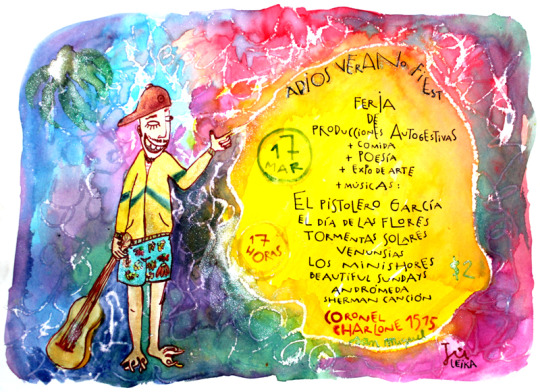 ADIOS VERANO FIEST
FERIA
DE
PRODUCCIONES AUTOGESTIVAS
+ COMIDA
+ POESÍA
+ EXPO DE ARTE
+ MÚSICAS:
17
MAR
17
HORAS
EL PISTOLERO GARCÍA
EL DÍA DE LAS FLORES
TORMENTAS SOLARES
VENUNSIAS
LOS MINISHORES
BEAUTIFUL SUNDAYS
ANDRÓMEDA
SHERMAN CANCIÓN
$2
CORONEL
CHARLONE 1515
San Miguel
LEIKA